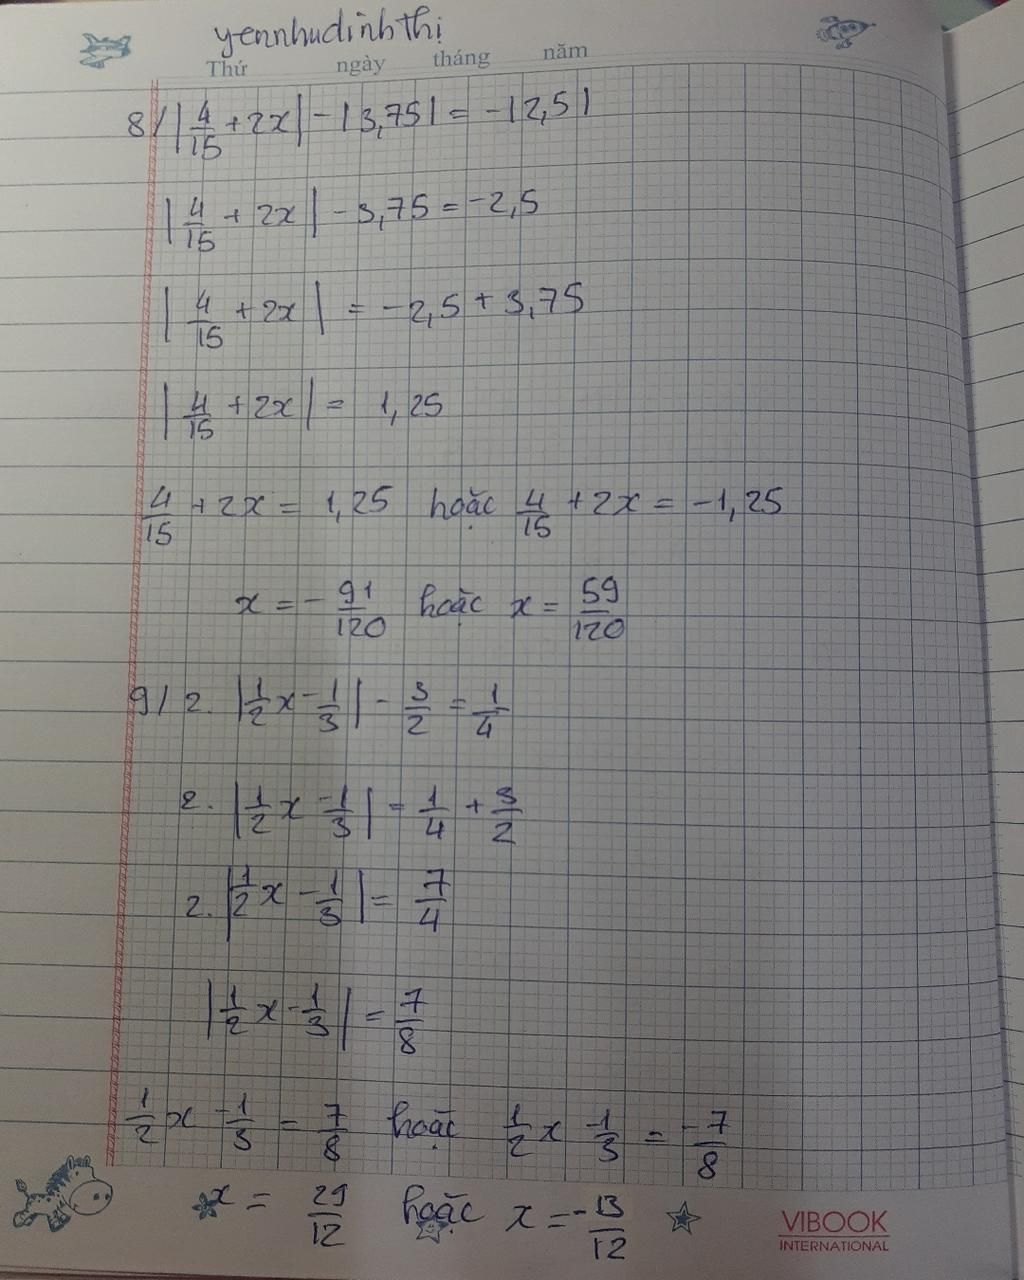 yennhudinhthị
Thứ ngày tháng năm
8/ |4/15 + 2x| - |3,75| = -|2,5|
|4/15 + 2x| - 3,75 = -2,5
|4/15 + 2x| = -2,5 + 3,75
|4/15 + 2x| = 1,25
4/15 + 2x = 1,25 hoặc 4/15 + 2x = -1,25
x = - 91/120 hoặc x = 59/120
9/ 2. |1/2 x - 1/3| - 3/2 = 1/4
2. |1/2 x - 1/3| = 1/4 + 3/2
2. |1/2 x - 1/3| = 7/4
|1/2 x - 1/3| = 7/8
1/2 x - 1/3 = 7/8 hoặc 1/2 x - 1/3 = -7/8
x = 29/12 hoặc x = - 13/12
VIBOOK
INTERNATIONAL